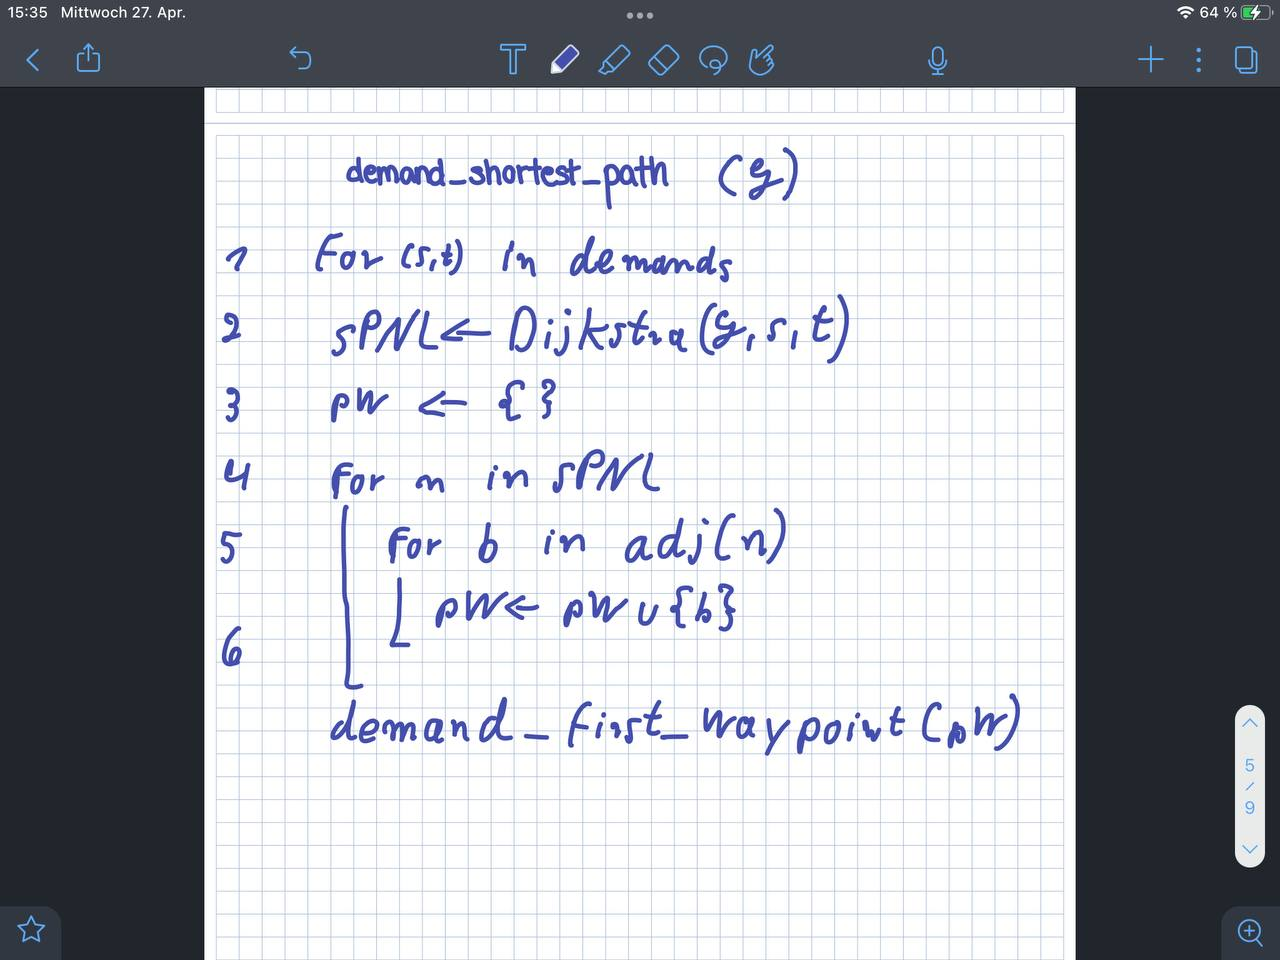 15:35 Mittwoch 27. Apr. 64 %
T
demand_shortest_path (G)
1 For (s,t) in demands
2 sPNL ← Dijkstra(G, s, t)
3 pW ← { }
4 for n in sPNL
5 for b in adj(n)
pW ← pW ∪ {b}
6
demand_first_waypoint(pW)
5
/
9